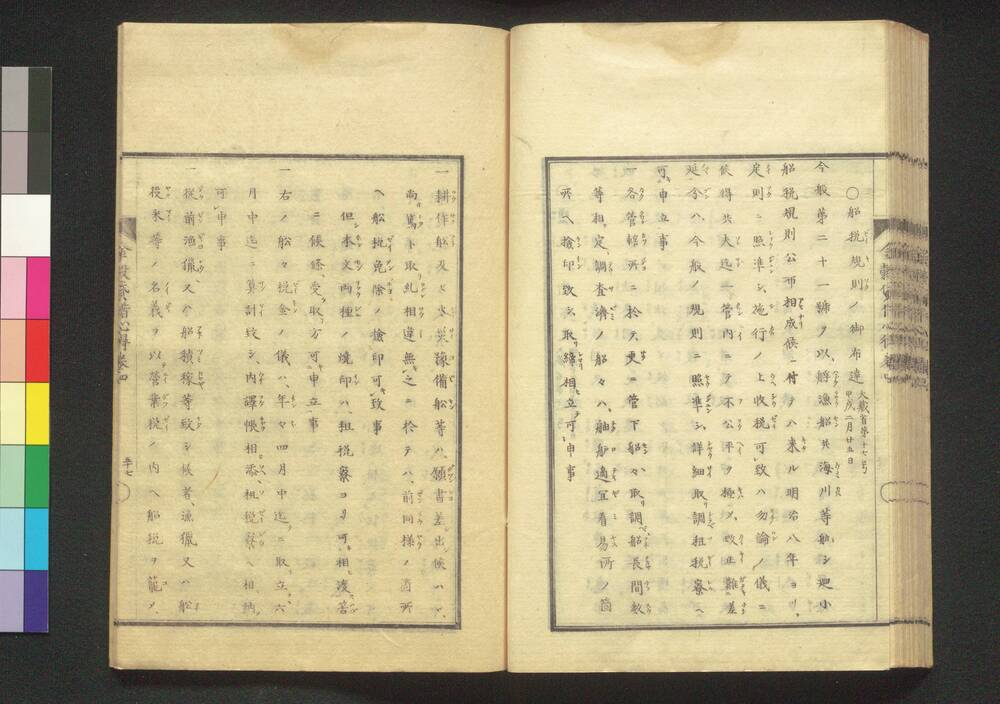 ○船税規則ノ御布達 大蔵省第十七号 甲戌二月廿五日
今般第二十一號ヲ以解漁船共海川等舶シ廻小
船税規則公布相成候ニ付テハ来ル明治八年ヨリ
定則ニ照準シ施行ノ上收税可致ハ勿論ノ儀ニ
候得共夫迄ニ管内ニテ不公平ヲ極メ改正難差
延分ハ今般ノ規則ニ照準シ詳細取調租税寮ヘ
可申立事
一各管轄所ニ於テ更ニ管下船々取調船長間数
等相定調査濟ノ船々ハ舳艫適宜看易所ノ箇
所ヘ撿印致シ取締相立可申事
一耕作船及ヒ水災豫備船等ハ願書差出候ハヽ
尚篤ト取糺相違無之ニ於テハ前同様ノ箇所
ヘ船税免除ノ撿印可致事
但本文両種ノ焼印ハ租税寮ヨリ可相渡筈
ニ候條受取方可申立事
一右ノ船々税金ノ儀ハ年々四月中迄ニ取立六
月中迄ニ算計致シ内譯帳相添租税寮ヘ相納
可申事
一従前漁猟又ハ船積稼等致シ候者漁猟又ハ船
役永等ノ名義ヲ以営業税ノ内ヘ船税ヲ籠メ
五十七